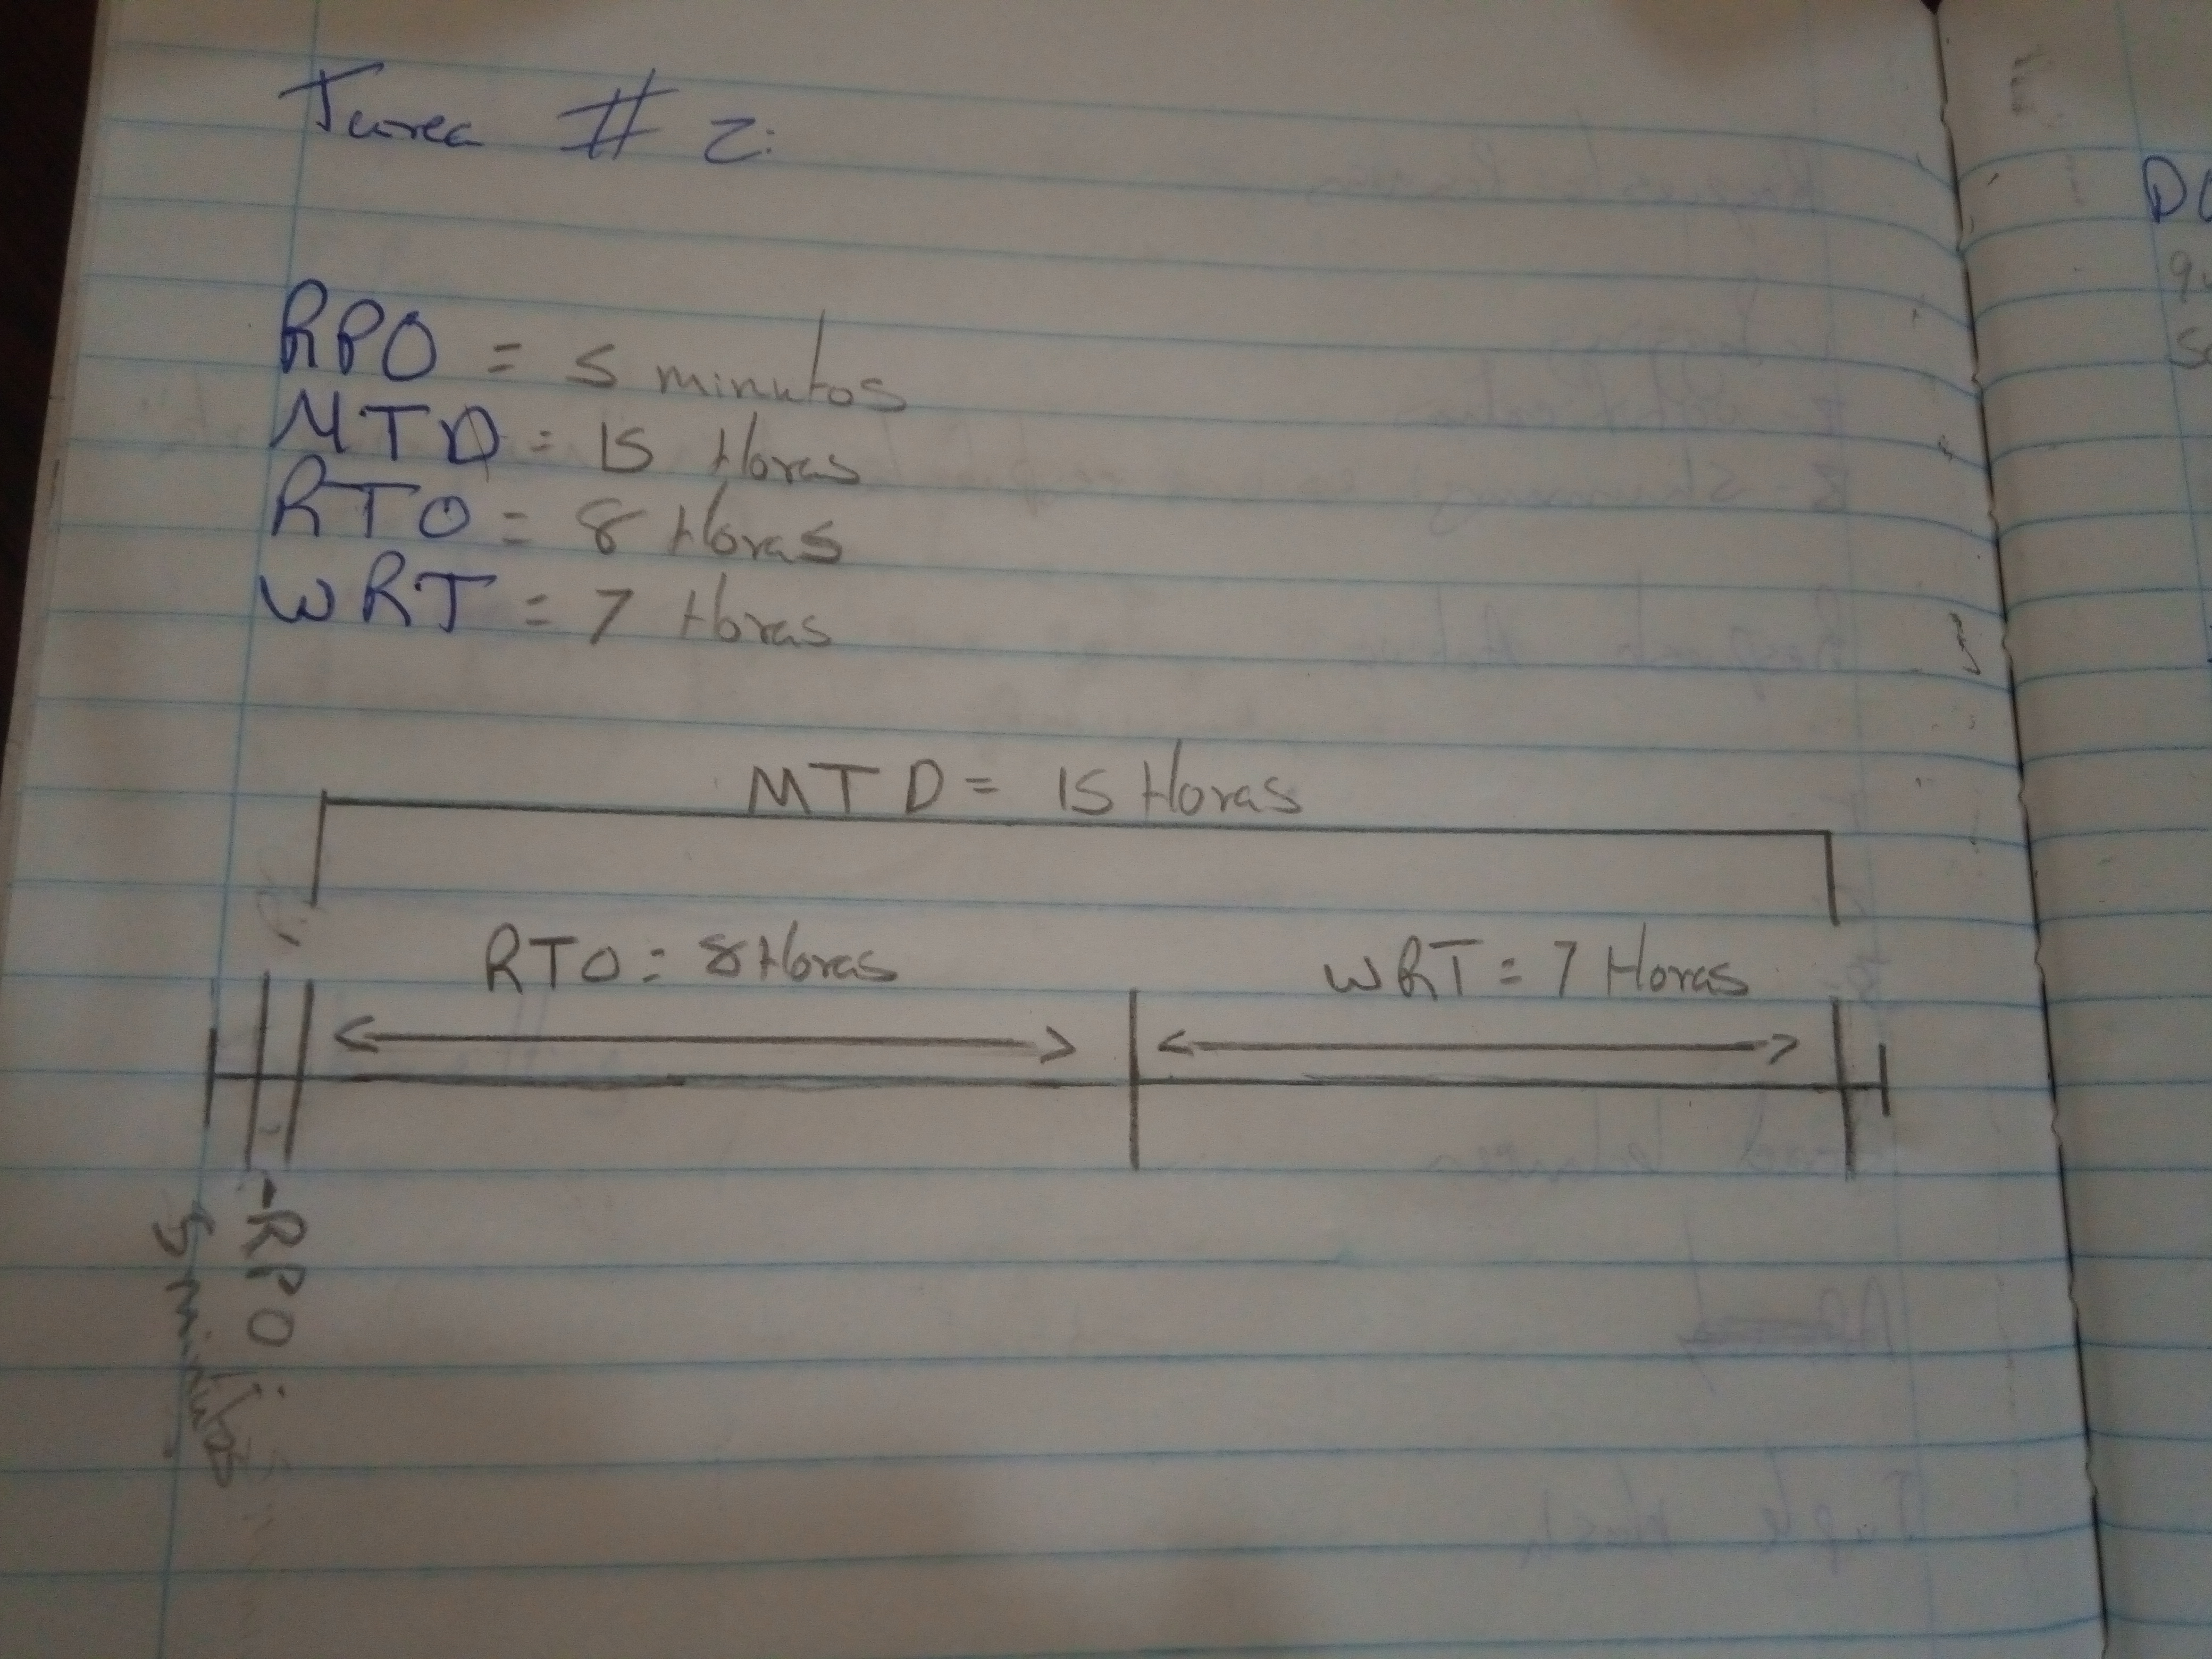 Tarea # 2:
RPO = 5 minutos
MTD = 15 Horas
RTO = 8 Horas
WRT = 7 Horas
MTD = 15 Horas
RTO = 8 Horas
WRT = 7 Horas
-RPO:
5 minutos